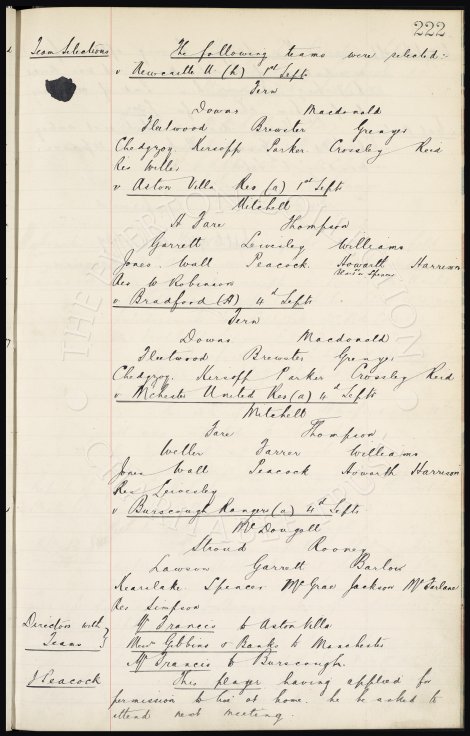 222
Team Selections The following teams were selected:-
v Newcastle U (h) 1st Septr
Fern
Downs Macdonald
Fleetwood Brewster Grenyer
Chedgzoy Kirsopp Parker Crossley Reid
Res Weller
v Aston Villa Res (a) 1st Septr
Mitchell
A Fare Thompson
Garrett Lewisley Williams
Jones Wall Peacock Howarth Harrison
Res W Robinson
v Bradford (A) 4th Septr
Fern
Downs Macdonald
Fleetwood Brewster Grenyer
Chedgzoy Kirsopp Parker Crossley Reid
v Mchester United Res (a) 4th Septr
Mitchell
Fare Thompson
Weller Farrer Williams
Jones Wall Peacock Howarth Harrison
Res Leivesley
v Burscough Rangers (a) 4th Septr
McDougall
Stroud Rooney
Lawson Garrett Barlow
Mearslake Spencer McGrae Jackson McFarlane
Res Simpson
Directors with Teams
Mr Francis to Aston Villa
Messrs Gibbins & Banks to Manchester
Mr Francis to Burscough.
J Peacock This player having applied for
permission to live at home. he be asked to
attend next meeting.